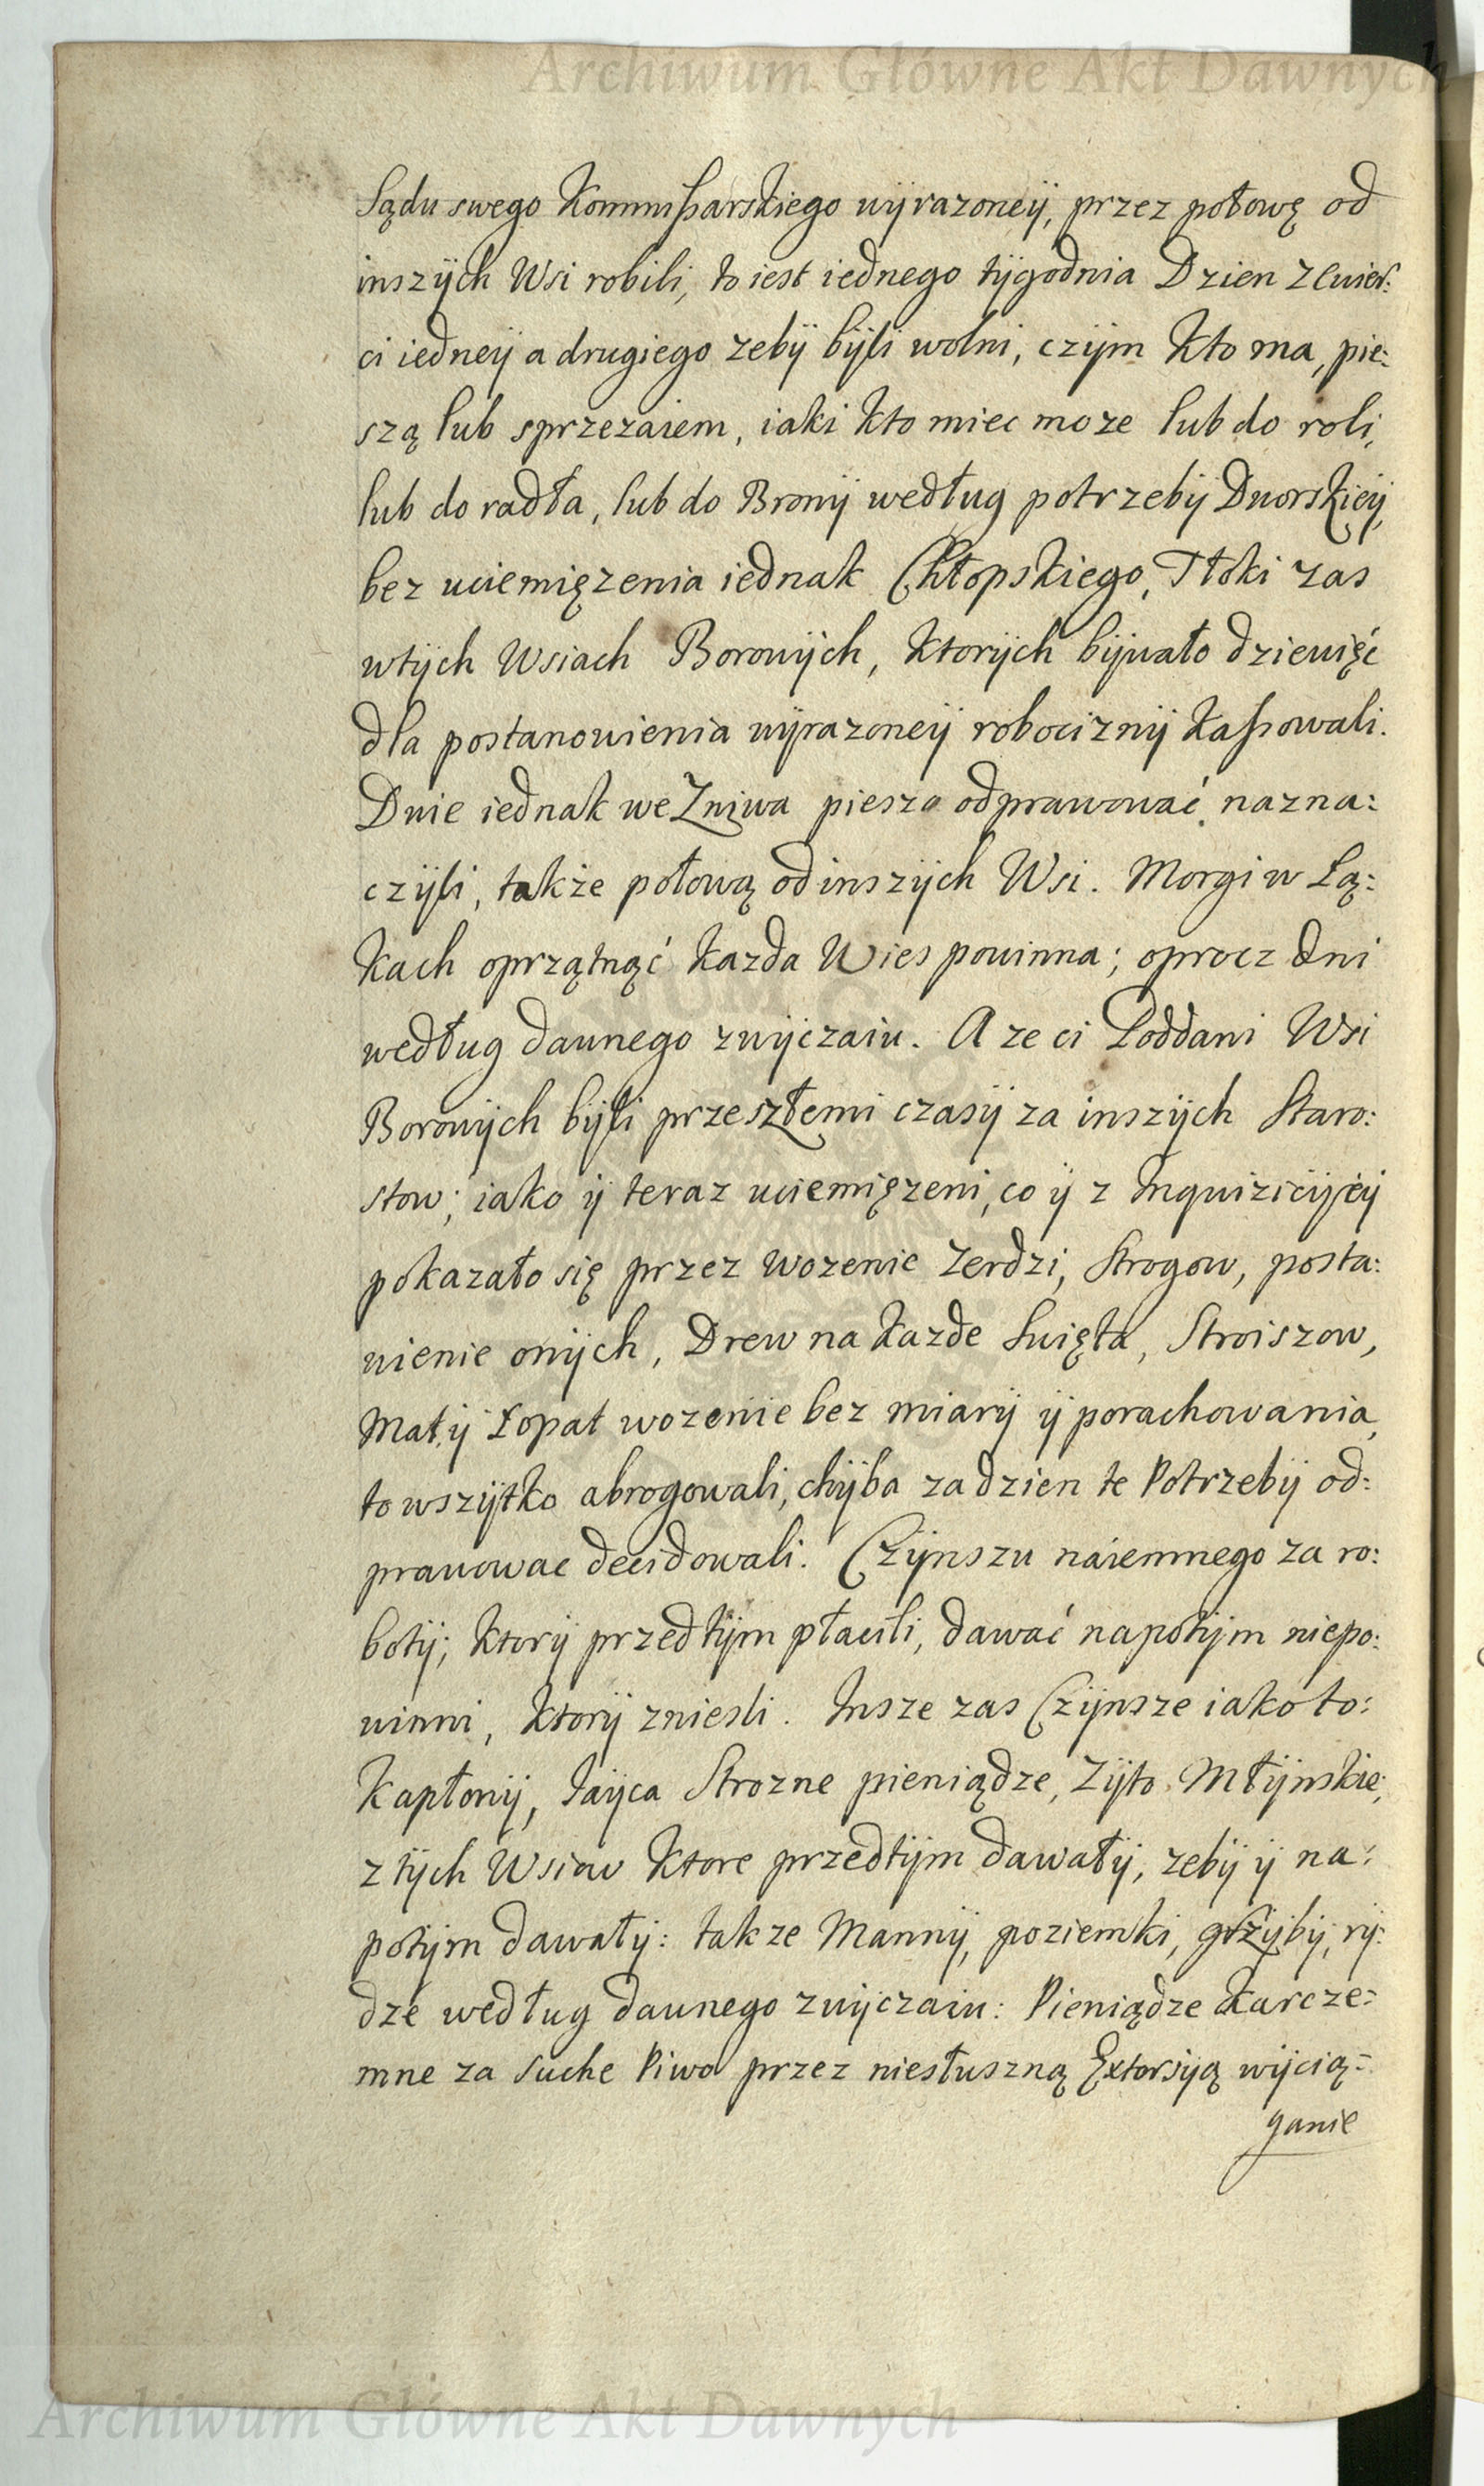 Archiwum Główne Akt Dawnych
Sądu swego Kommissarskiego wyrazoney, przez połowę od
inszych Wsi robili, to iest iednego tygodnia Dzien z Cwier:
ci iedney a drugiego zeby byli wolni, czym kto ma, pie:
szą lub sprzezaiem, iaki kto miec moze lub do roli,
lub do radła, lub do Brony według potrzeby Dworskiey,
bez uciemięzenia iednak Chłopskiego, Tłoki zas
wtych Wsiach Borowych, ktorych bywało dziewięć
dla postanowienia wyrazoney robocizny kassowali.
Dnie iednak we Zniwa pieszo odprawować nazna:
czyli, także połową od inszych Wsi. Morgi w Łą:
kach oprzątnąć kazda Wies powinna; oprocz dni
według dawnego zwyczaiu. A ze ci Poddani Wsi
Borowych byli przeszłemi czasy za inszych Staro:
stow; iako y teraz uciemięzeni, co y z Inquizicyey
pokazało się przez wozenie Zerdzi, Strogow, posta:
wienie onych, Drew na kazde Swięta, Stroiszow,
Mat, y Łopat wozenie bez miary y porachowania,
to wszytko abrogowali, chyba za dzien te Potrzeby od:
prawowac decidowali. Czynszu naiemnego za ro:
boty; ktory przedtym płacili, dawać napotym niepo:
winni, ktory zniesli. Insze zas Czynsze iako to:
Kapłony, Iayca Strozne pieniądze, Zyto Młynskie,
z tych Wsiow ktore przedtym dawały, zeby y na:
potym dawały: takze Manny, poziemki, grzyby, ry:
dze według dawnego zwyczaiu: Pieniądze karcze=
mne za suche Piwo przez niesłuszną Extorsyą wycią=
ganie
Archiwum Główne Akt Dawnych